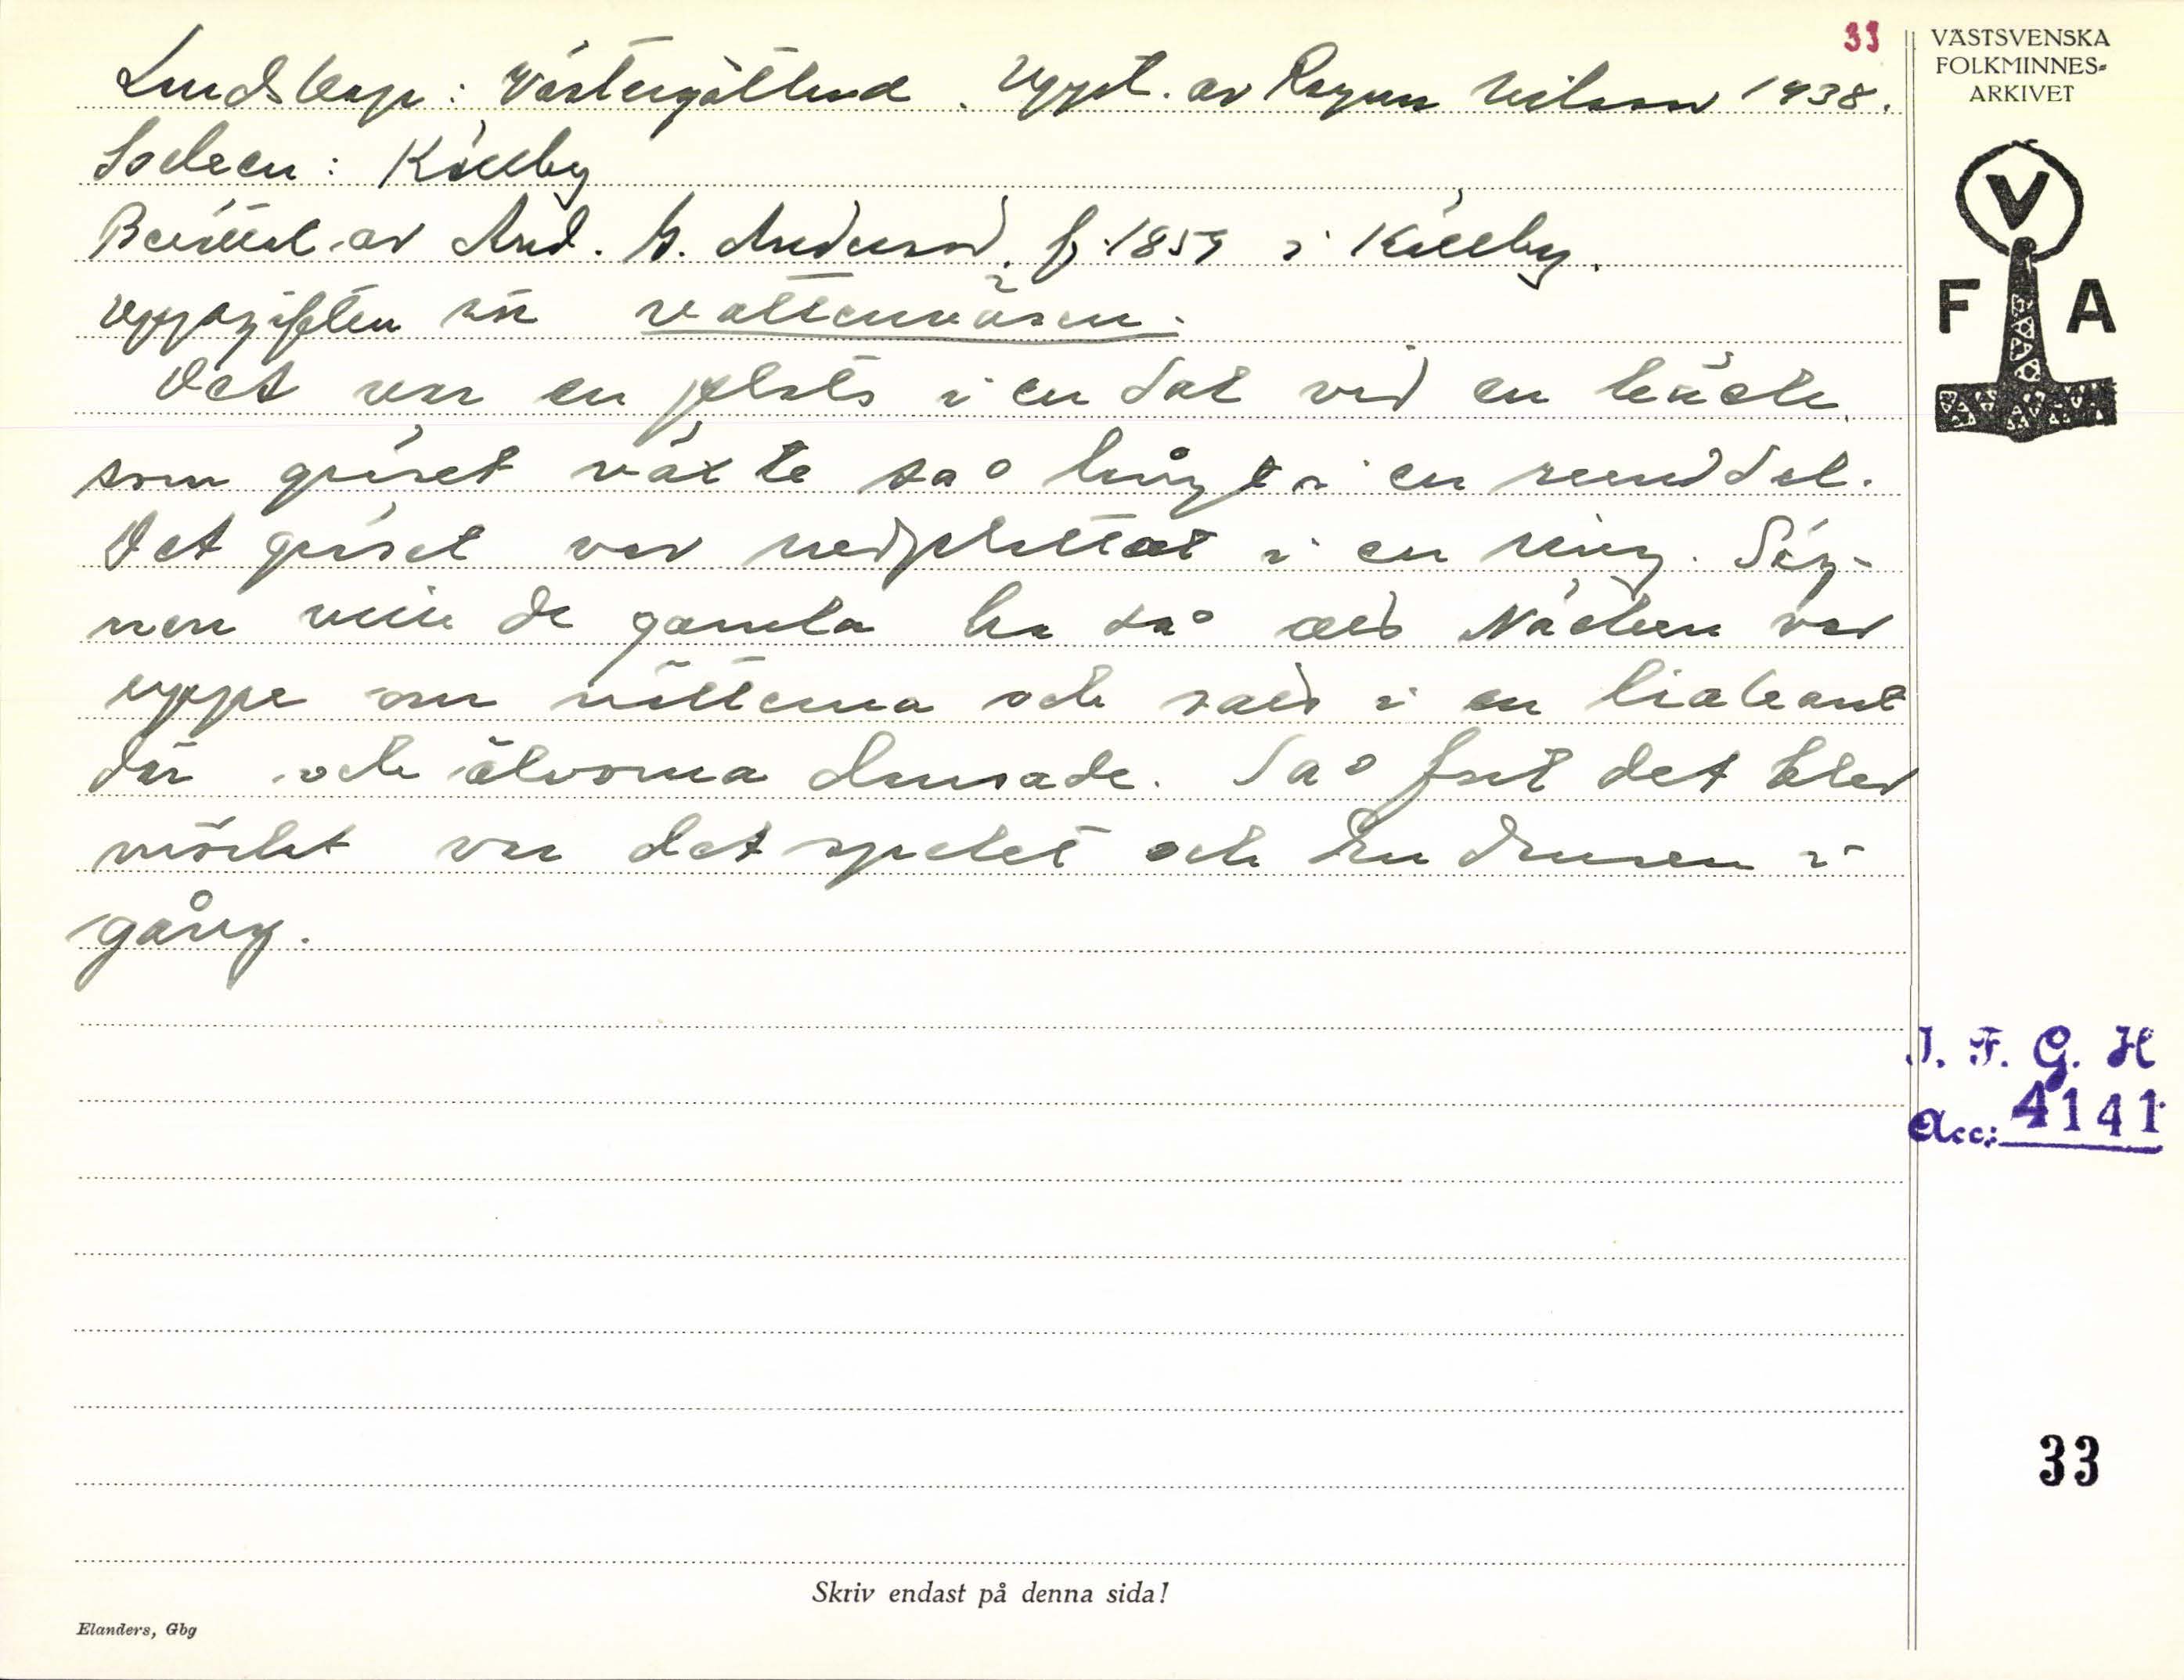 33
VÄSTSVENSKA
FOLKMINNES-
ARKIVET
Landskap: Västergötland. Uppt. av Ragnar Nilsson 1938.
Socken: Källby
Berättat av And. G. Andersson, f. 1859 i Källby.
Uppgiften rör vattenväsen.
Det var en plats i en dal vid en bäck,
som gräset växte så långt i en runddel.
Det gräset var nedplattat i en ring. Säg-
nen ville de gamla ha så att Näcken var
uppe om nätterna och satt i en
där och älvorna dansade. Så fort det blev
mörkt var det spelet och den dansen i
gång.
V
F A
I. F. G. H
Acc: 4141
33
Skriv endast på denna sida!
Elanders, Gbg